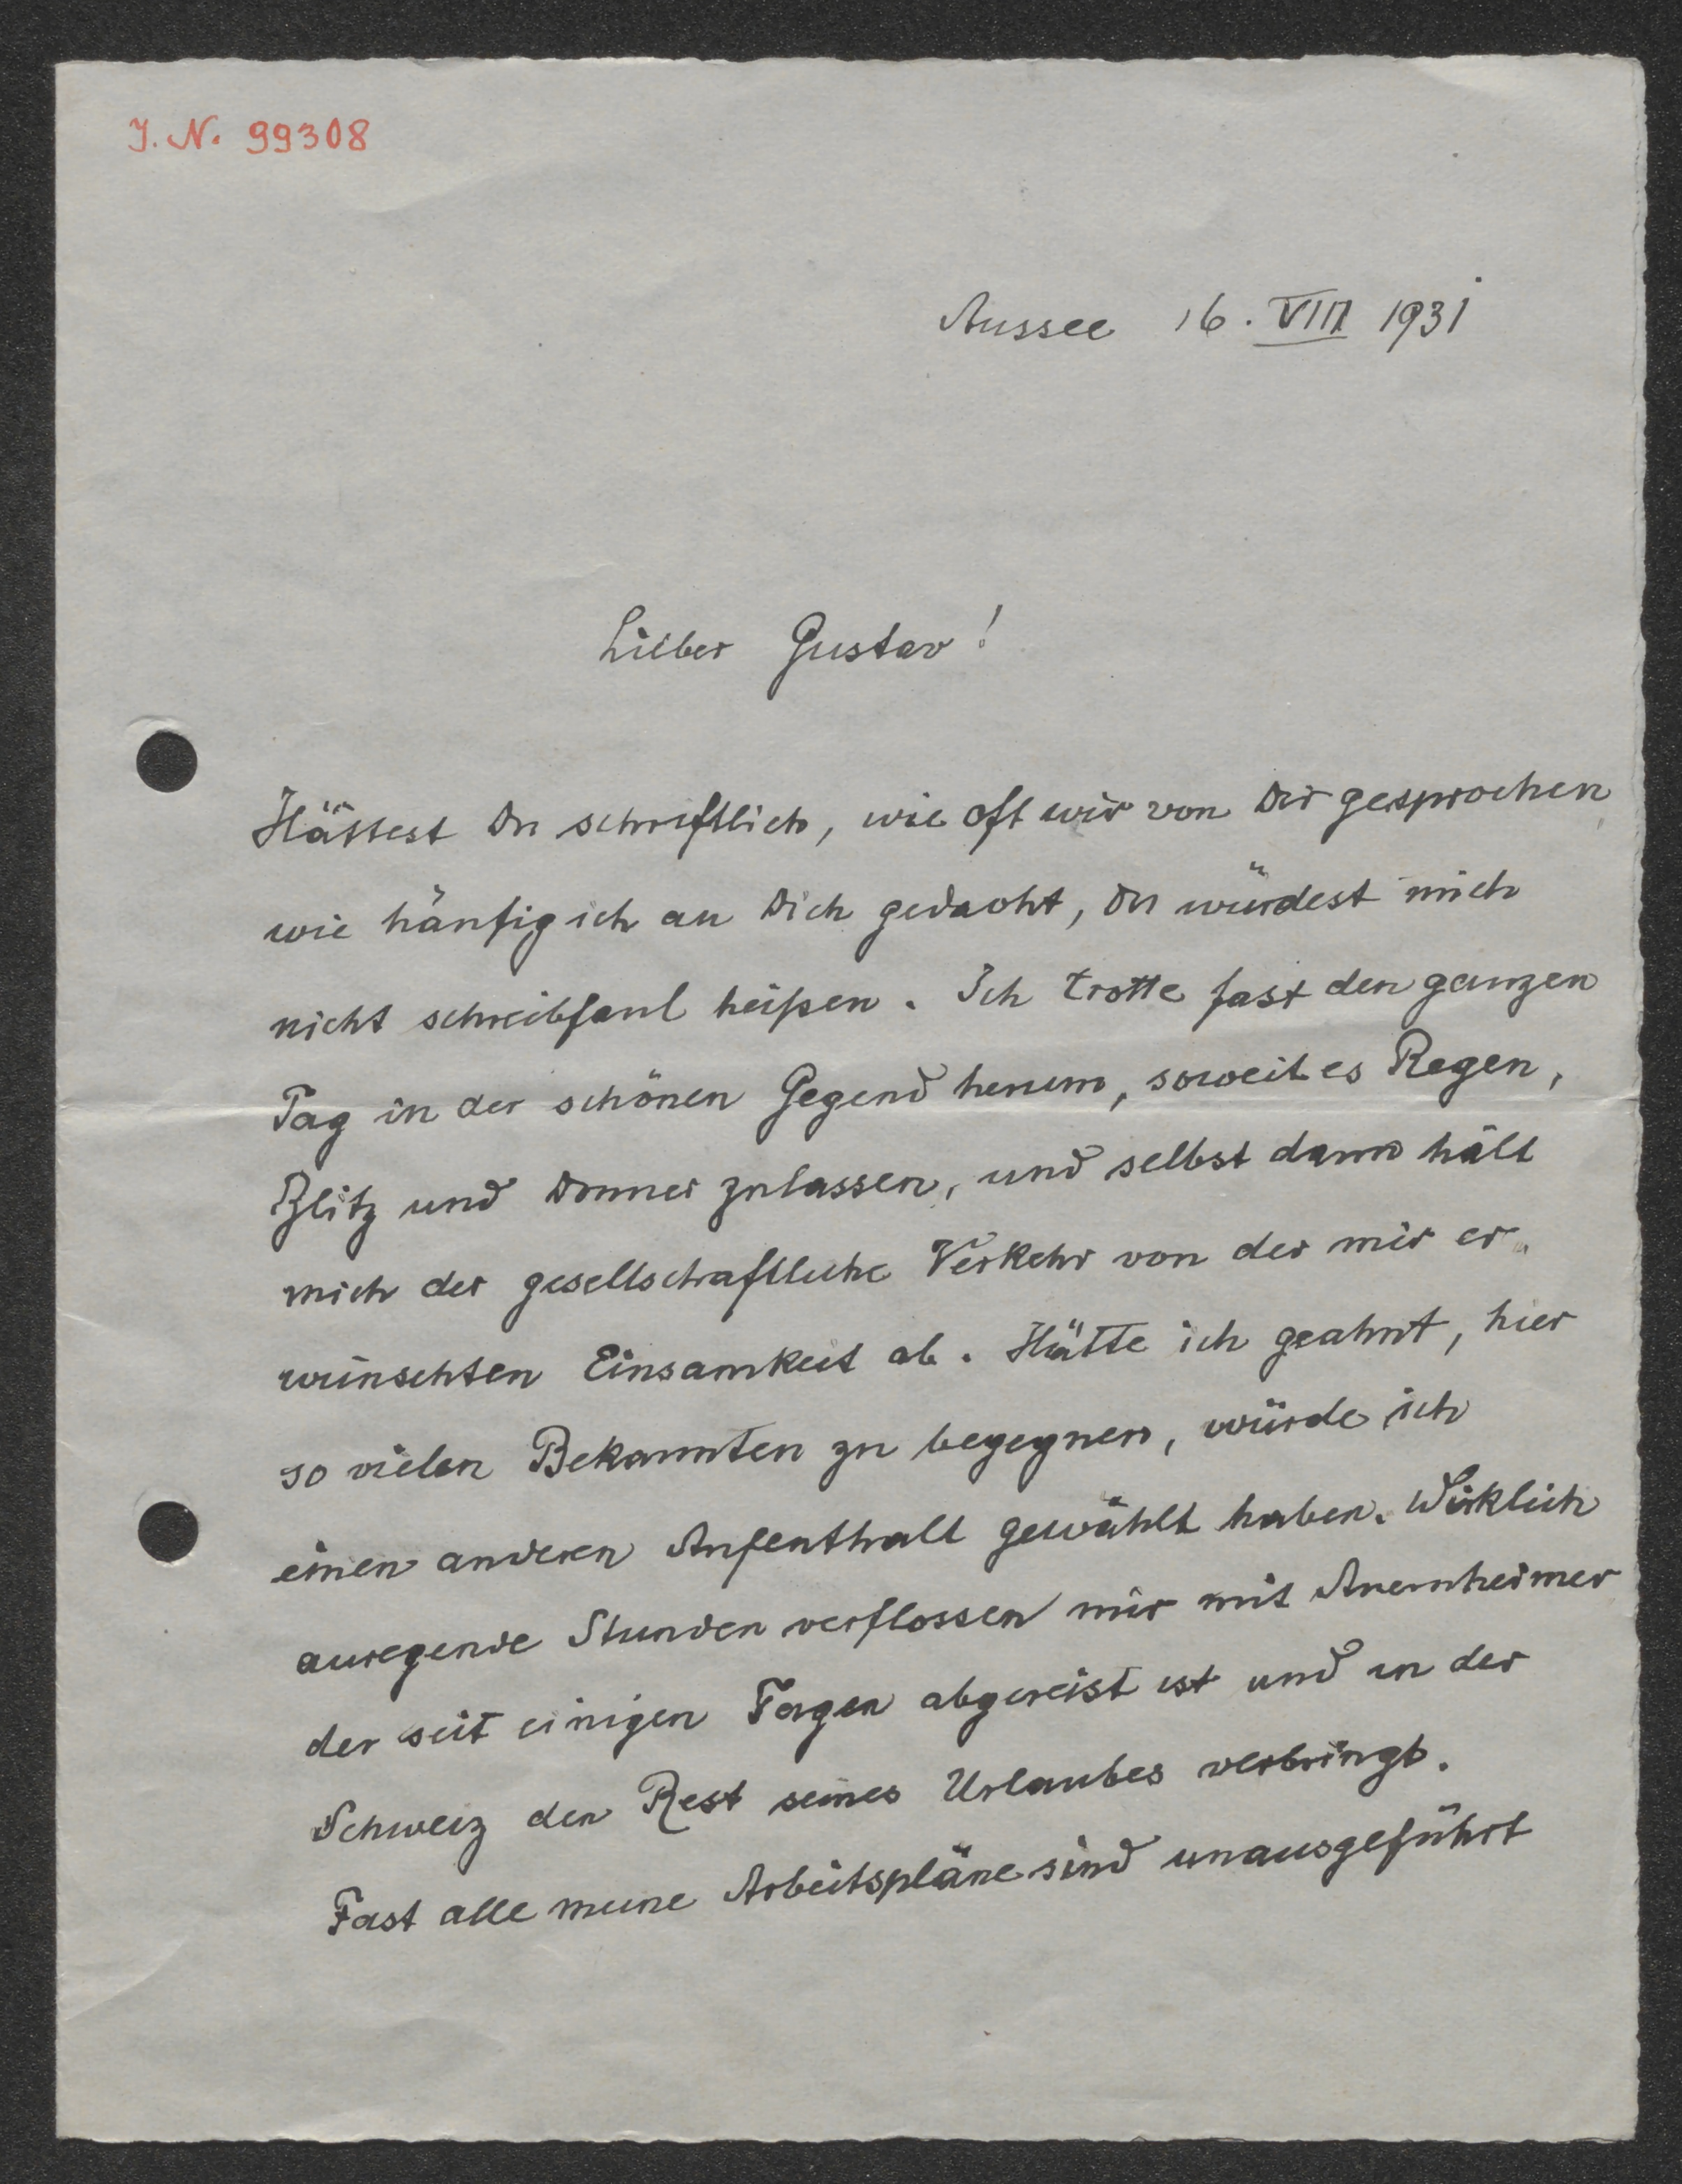 J. N. 99308
Aussee 16. VIII 1931
Lieber Gustav!
Hättest Du schriftlich, wie oft wir von Dir gesprochen
wie häufig ich an Dich gedacht, Du würdest mich
nicht schreibfaul heißen. Ich trotte fast den ganzen
Tag in der schönen Gegend herum, soweit es Regen,
Blitz und Donner zulassen, und selbst dann hält
mich der gesellschaftliche Verkehr von der mir er-
wünschten Einsamkeit ab. Hätte ich geahnt, hier
so vielen Bekannten zu begegnen, würde ich
einen anderen Aufenthalt gewählt haben. Wirklich
anregende Stunden verflossen mir mit Auernheimer
der seit einigen Tagen abgereist ist und in der
Schweiz den Rest seines Urlaubes verbringt.
Fast alle meine Arbeitspläne sind unausgeführt